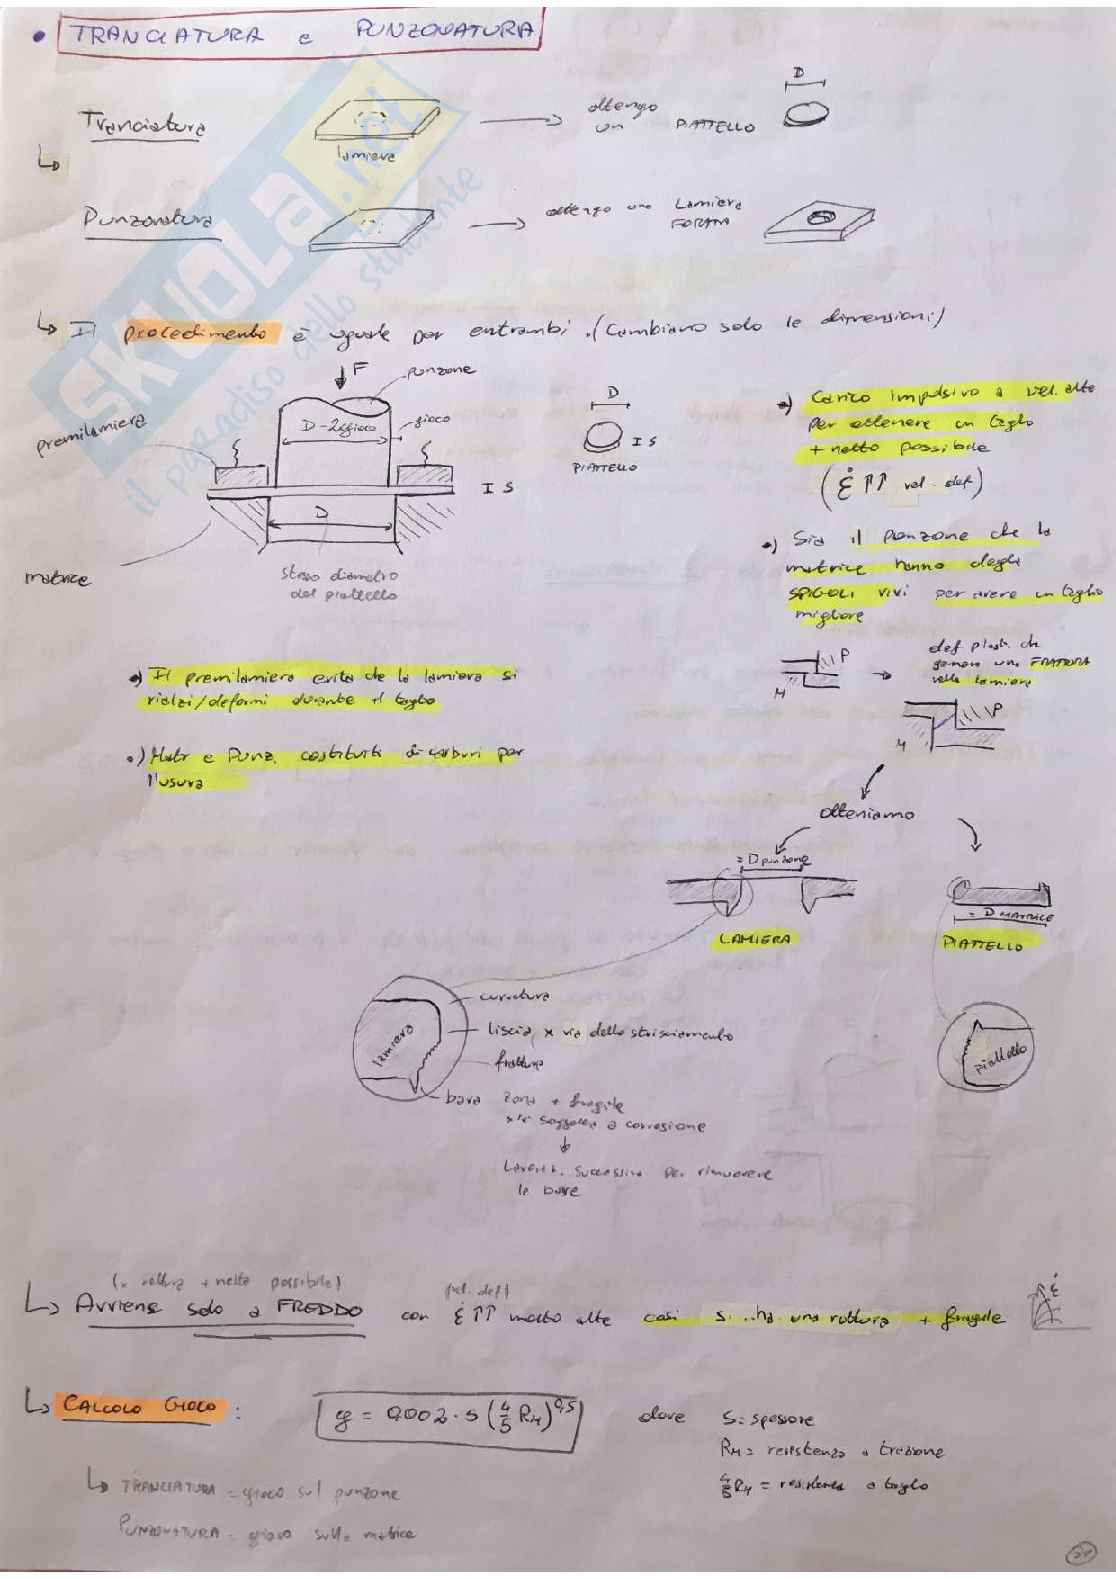 • TRANCIATURA e PUNZONATURA
Tranciatura
lamiera
ottengo
un PIATTELLO
D
Punzonatura
ottengo una lamiera
FORATA
Il procedimento è uguale per entrambi. (Cambiano solo le dimensioni)
F
punzone
gioco
D-2gioco
premilamiera
S
D
matrice
stesso diametro
del piattello
D
S
PIATTELLO
•) Carico impulsivo a vel. alte
per ottenere un taglio
+ netto possibile
(ε̇ ↑↑ vel. def)
•) Sia il punzone che la
matrice hanno degli
SPIGOLI vivi per avere un taglio
migliore
P
M
def plast. che
genera una FRATTURA
nella lamiera
P
M
•) Il premilamiera evita che la lamiera si
rialzi/deformi durante il taglio
•) Matr e Punz. costituiti di carburi per
l'usura
otteniamo
= D punzone
LAMIERA
= D MATRICE
PIATTELLO
lamiera
curvatura
liscia x via dello strisciamento
frattura
bava zona + fragile
soggetta a corrosione
successiva per rimuovere
le bave
piattello
(x rottura + netta possibile)
(vel. def)
Avviene solo a FREDDO con ε̇ ↑↑ molto alte così si ha una rottura + fragile
ε̇
CALCOLO GIOCO:
g = 0,002 · s (4/5 RM)^0,5
dove S: spessore
RM = resistenza a trazione
4/5 RM = resistenza a taglio
TRANCIATURA = gioco sul punzone
PUNZONATURA = gioco sulla matrice
SKUOLA.net
il paradiso dello studente